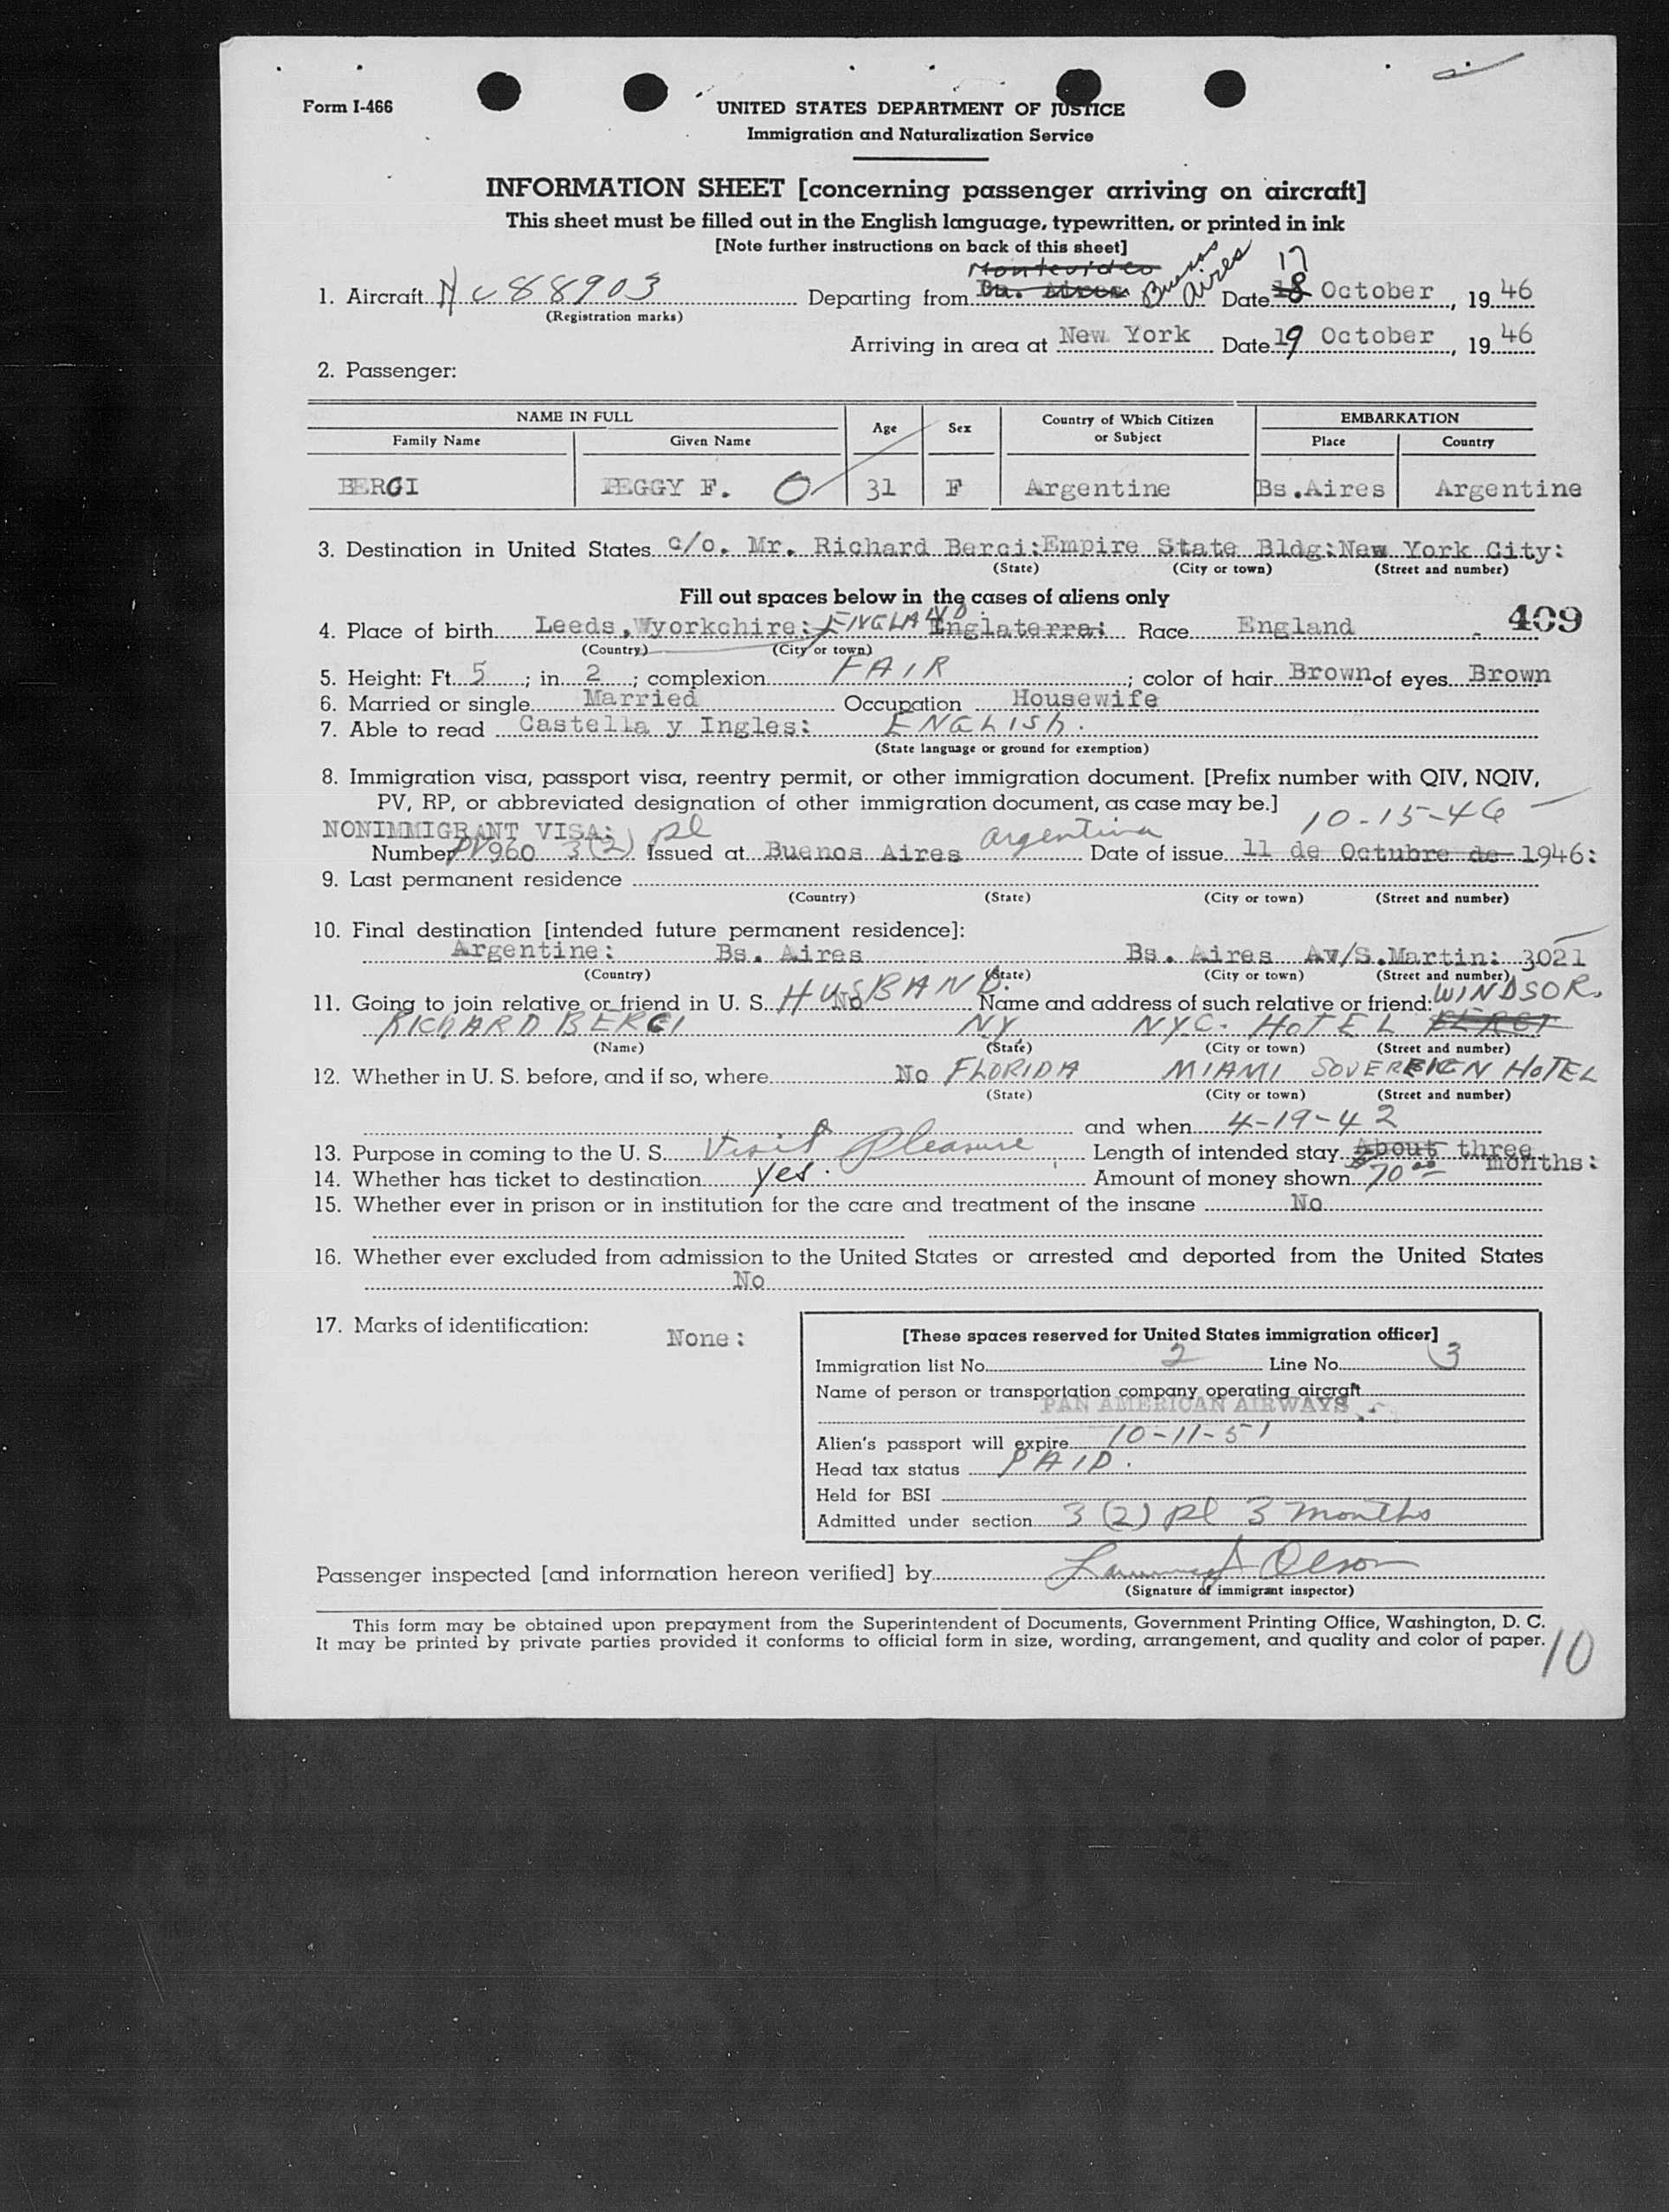 Form I-466
UNITED STATES DEPARTMENT OF JUSTICE
Immigration and Naturalization Service
INFORMATION SHEET [concerning passenger arriving on aircraft]
This sheet must be filled out in the English language, typewritten, or printed in ink
[Note further instructions on back of this sheet]
Montevideo 17
1. Aircraft NC 88903 Departing from Bu. Aires Buenos Aires Date 18 October, 1946
(Registration marks)
Arriving in area at New York Date 19 October, 1946
2. Passenger:
NAME IN FULL Age Sex Country of Which Citizen or Subject EMBARKATION
Family Name Given Name Place Country
BERCI PEGGY F. O 31 F Argentine Bs.Aires Argentine
3. Destination in United States c/o. Mr. Richard Berci:Empire State Bldg:New York City:
(State) (City or town) (Street and number)
Fill out spaces below in the cases of aliens only
4. Place of birth Leeds,Wyorkchire: ENGLAND Inglaterra: Race England 409
(Country) (City or town)
5. Height: Ft. 5; in. 2; complexion FAIR; color of hair Brown of eyes Brown
6. Married or single Married Occupation Housewife
7. Able to read Castella y Ingles: ENGLISH.
(State language or ground for exemption)
8. Immigration visa, passport visa, reentry permit, or other immigration document. [Prefix number with QIV, NQIV,
PV, RP, or abbreviated designation of other immigration document, as case may be.] 10-15-46
NONIMMIGRANT VISA: pl
Number PV960 3(2) Issued at Buenos Aires Argentina Date of issue 11 de Octubre de 1946:
9. Last permanent residence
(Country) (State) (City or town) (Street and number)
10. Final destination [intended future permanent residence]:
Argentine: Bs. Aires Bs. Aires Av/S.Martin: 3021
(Country) (State) (City or town) (Street and number)
11. Going to join relative or friend in U. S. No HUSBAND. Name and address of such relative or friend: WINDSOR.
RICHARD BERCI NY NYC. HOTEL
(Name) (State) (City or town) (Street and number)
12. Whether in U. S. before, and if so, where No FLORIDA MIAMI SOVEREIGN HOTEL
(State) (City or town) (Street and number)
and when 4-19-42
13. Purpose in coming to the U. S. Visit Pleasure Length of intended stay About three months:
14. Whether has ticket to destination yes. Amount of money shown $70.00
15. Whether ever in prison or in institution for the care and treatment of the insane No
16. Whether ever excluded from admission to the United States or arrested and deported from the United States
No
17. Marks of identification: None:
[These spaces reserved for United States immigration officer]
Immigration list No. 2 Line No. 3
Name of person or transportation company operating aircraft
PAN AMERICAN AIRWAYS
Alien's passport will expire 10-11-51
Head tax status PAID.
Held for BSI
Admitted under section 3 (2) pl 3 months
Passenger inspected [and information hereon verified] by Olson
(Signature of immigrant inspector)
This form may be obtained upon prepayment from the Superintendent of Documents, Government Printing Office, Washington, D. C.
It may be printed by private parties provided it conforms to official form in size, wording, arrangement, and quality and color of paper.
10